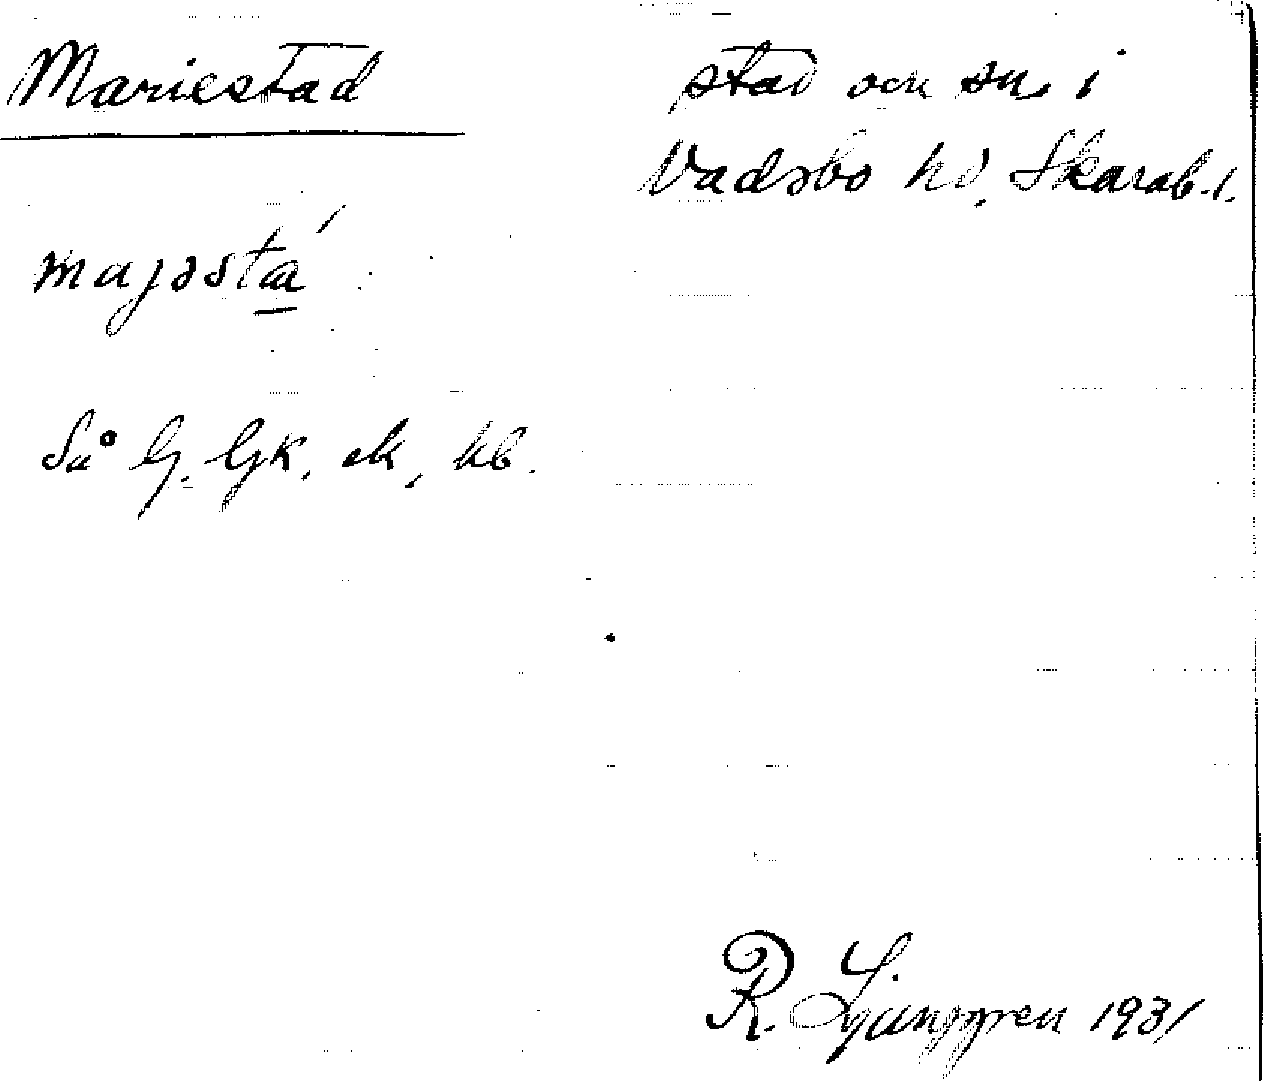 Mariestad
stad och sn. i
Vadsbo hd, Skarab. l.
majəstá
Så G. Gk, ek, hb.
R. Ljunggren 1931